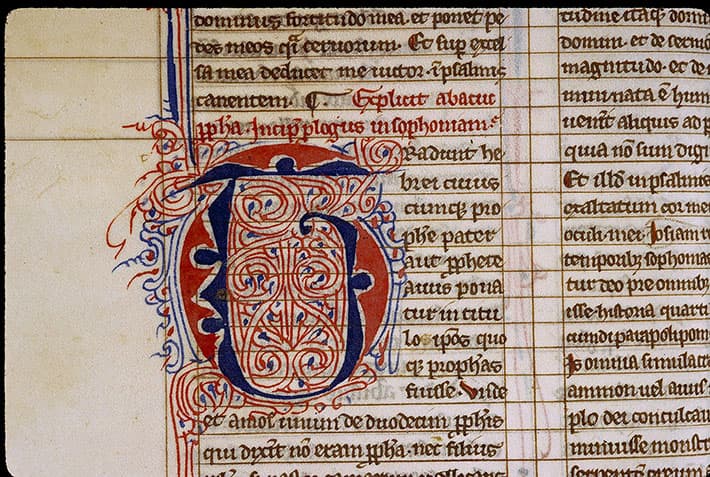 dominus fortitudo mea. et ponet pe
des meos q̃ ceruorum. Et sup excel
sa mea deducet me uictor. ĩpsalmis
canentem. Explicit abacuc
ꝓph̃a. Incip̃ ꝓlogus in sophoniam
TRadunt he
brei cuius
cumq; pro
phe pater
aut ꝓphete
auus pona
tur in titu
lo. ip̃os quo
q; prophas
fuisse. Vnde
et amos unum de duodecim ꝓph̃is
qui dixit nõ eram ꝓph̃a. nec filius
tudine itaq; domi
domini. et de
magnitudo. et de
innata ẽ hum
uenit aliquis ad p
quia nõ sum dign
Et illd̃ in psalmis
exaltatum cor me
oculi mei. Iosiam
temporib; sophonias
tur deo pre omnib;
isse historia quarti
omnia simulacra
ammon uel auus
plo dei conculcau
minuisse monstr
serpentem creum